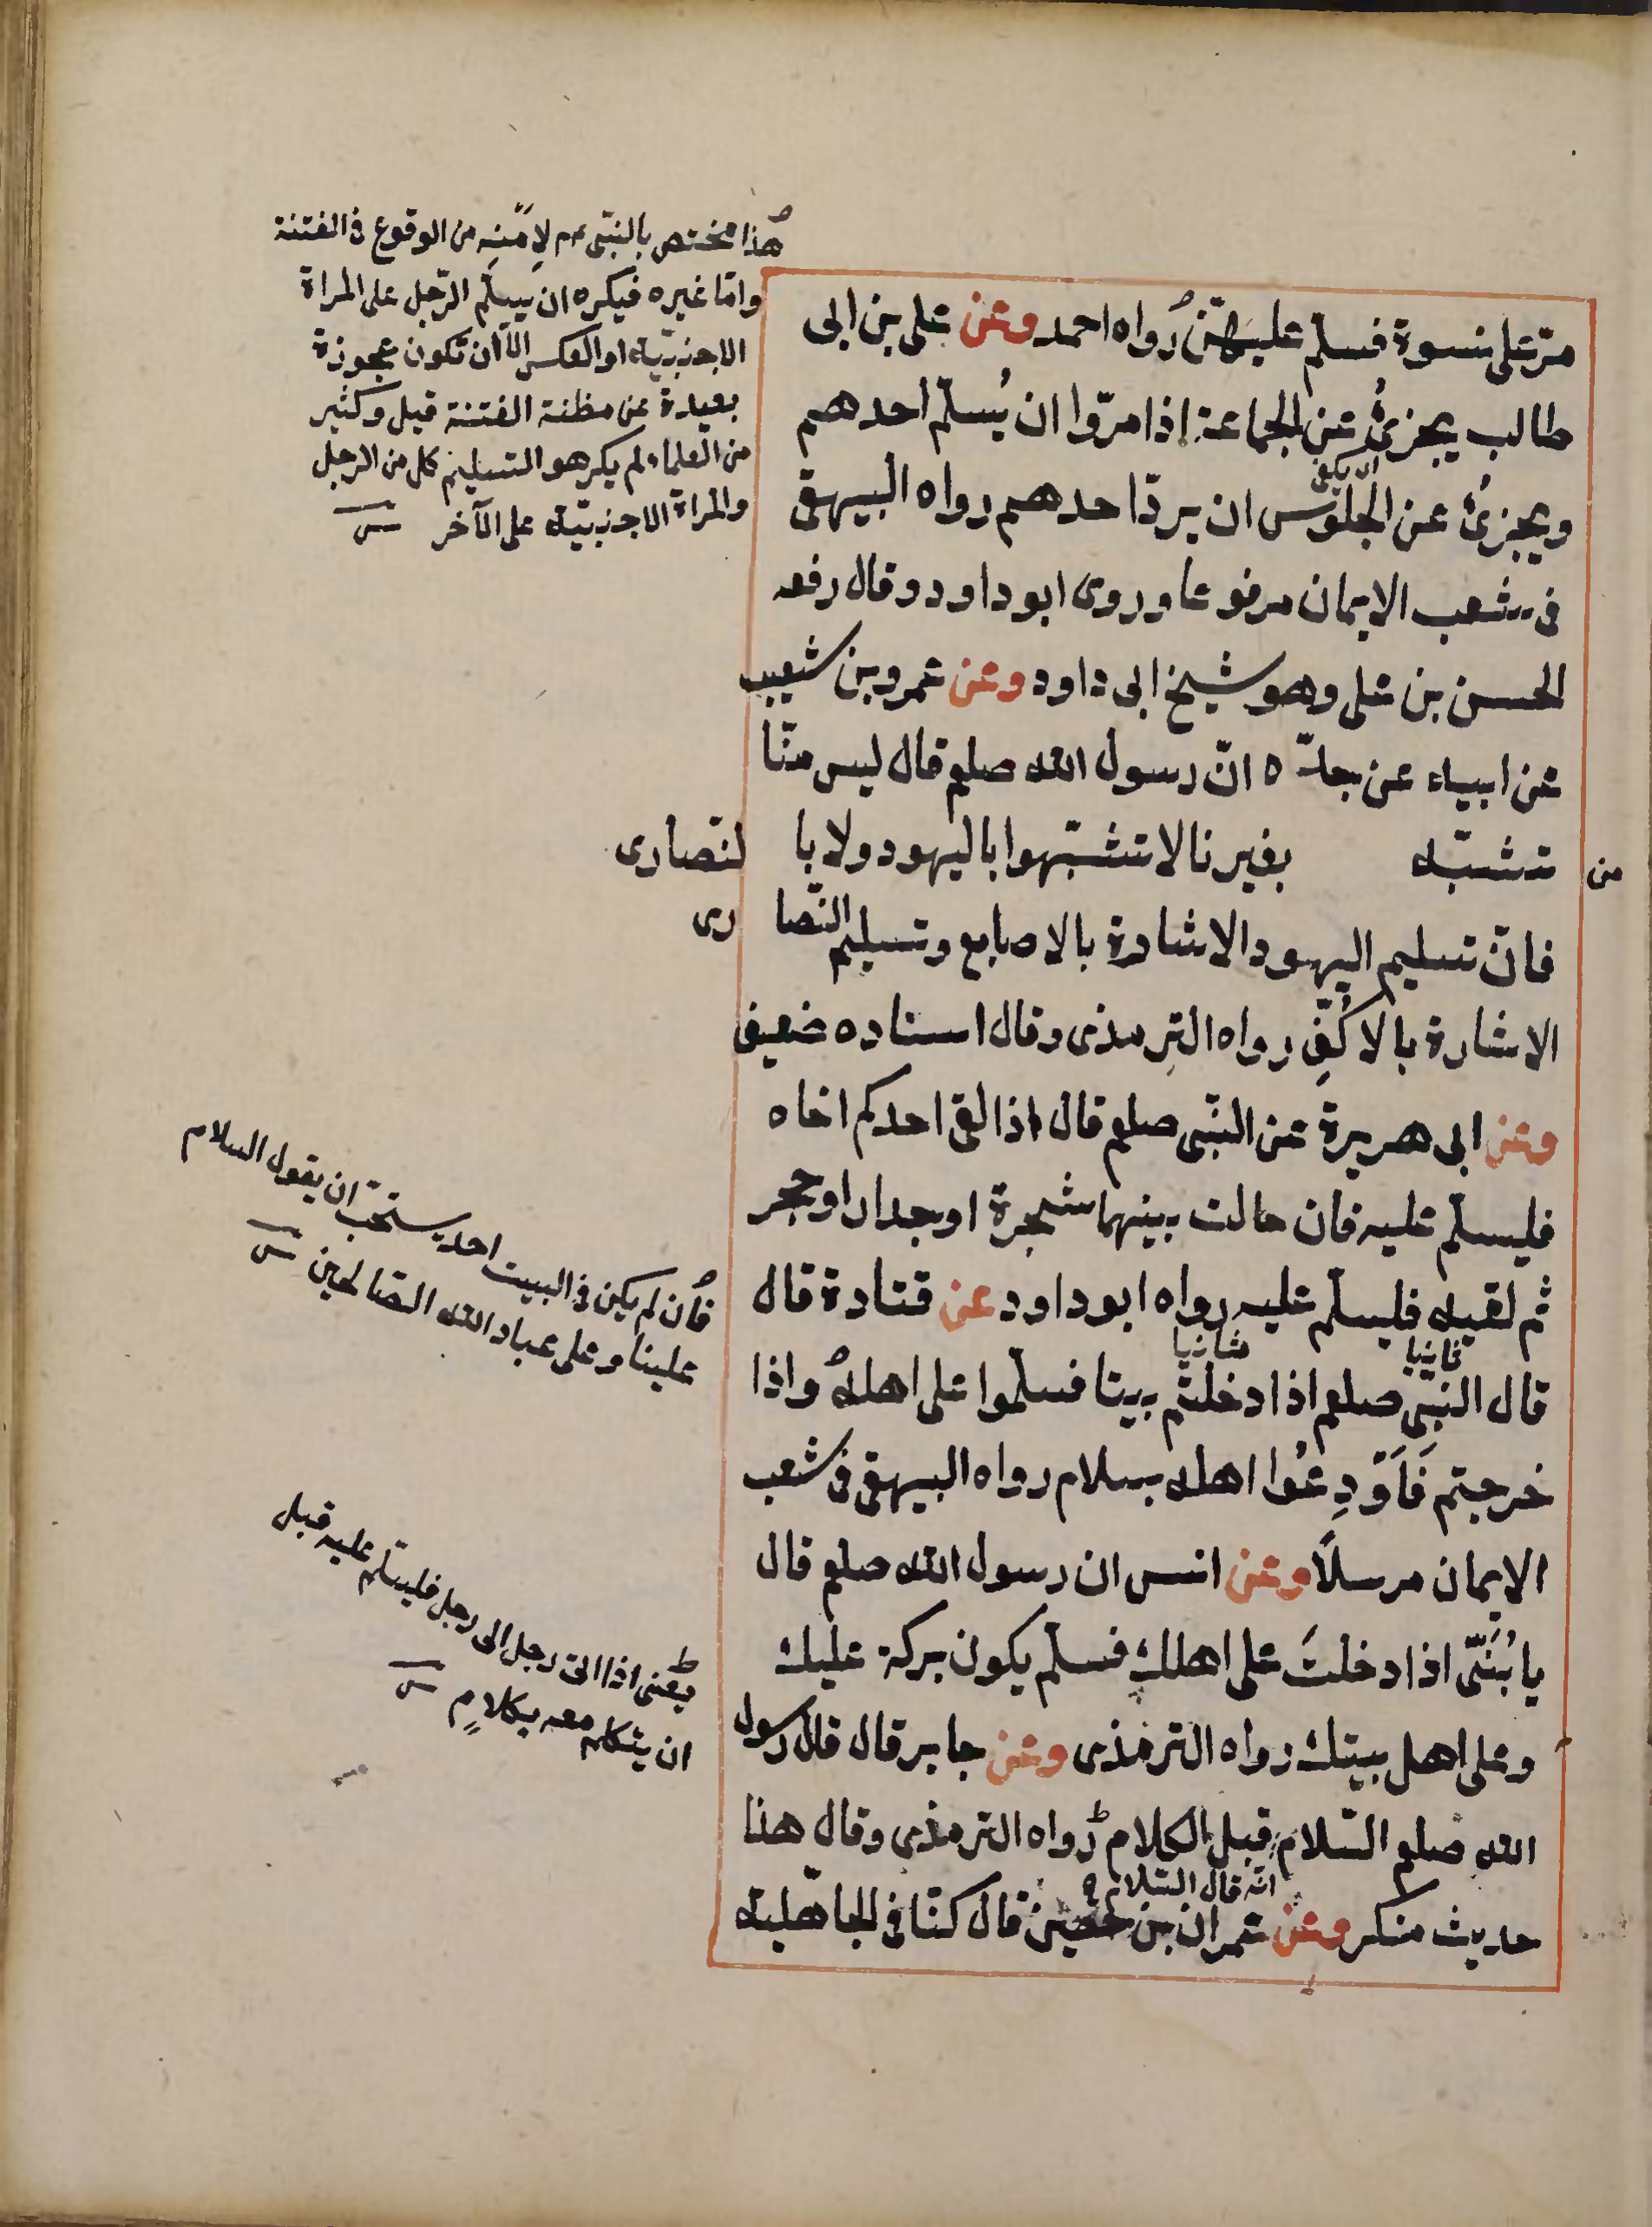 مرّ على نسوة فسلم عليهنّ رواه احمد وعن على بن ابى
طالب يجزئُ عن الجماعة إذا مرّوا ان يُسلّم احدهم
ويجزئ عن الجلوس ان يردّ احدهم رواه البيهقى
فى شعب الايمان مرفوعا وروى ابو داود وقال رفعه
الحسن بن على وهو شيخ ابى داود وعن عمرو بن شعيب
عن ابيه عن جدّه انّ رسول الله صلعم قال ليس منّا
من تشبّه بغيرنا لا تشبّهوا باليهود ولا بالنّصارى
فانّ تسليم اليهود الاشارة بالاصابع وتسليم النّصارى
الاشارة بالاكُفِّ رواه الترمذى وقال اسناده ضعيف
وعن ابى هريرة عن النّبى صلعم قال اذا لقى احدكم اخاه
فليسلّم عليه فان حالت بينهما شجرة او جدار او حجر
ثم لقيه فليسلّم عليه رواه ابو داود عن قتادة قال
قال النّبى صلعم اذا دخلتم بيتا فسلّموا على اهله واذا
خرجتم فَاَوْدِعُوا اهله بسلام رواه البيهقى فى شعب
الايمان مرسلًا وعن انس ان رسول الله صلعم قال
يا بُنَىّ اذا دخلتَ على اهلك فسلّم يكون بركة عليك
وعلى اهل بيتك رواه الترمذى وعن جابر قال قال رسول
الله صلعم السّلام قبل الكلام رواه الترمذى وقال هذا
حديث منكر وعن عمران بن حصين قال كنّا فى الجاهلية
ان يكفى
ثانيا
انّه قال السّلام
هذا مختص بالنبّى عم لِاَمْنِهِ من الوقوع فى الفتنة
وامّا غيره فيكره ان يسلّم الرّجل على المراة
الاجنبيّة او العكس الّا ان تكون عجوزة
بعيدة عن مظنة الفتنة قيل وكثير
من العلماء لم يكرهوا التسليم كل من الرجل
والمراة الاجنبيّة على الآخر
فان لم يكن فى البيت احد يستحبّ ان يقول السلام
علينا وعلى عباد الله الصّالحين
يعنى اذا اتى رجل الى رجل فليسلّم عليه قبل
ان يتكلم معه بكلامٍ